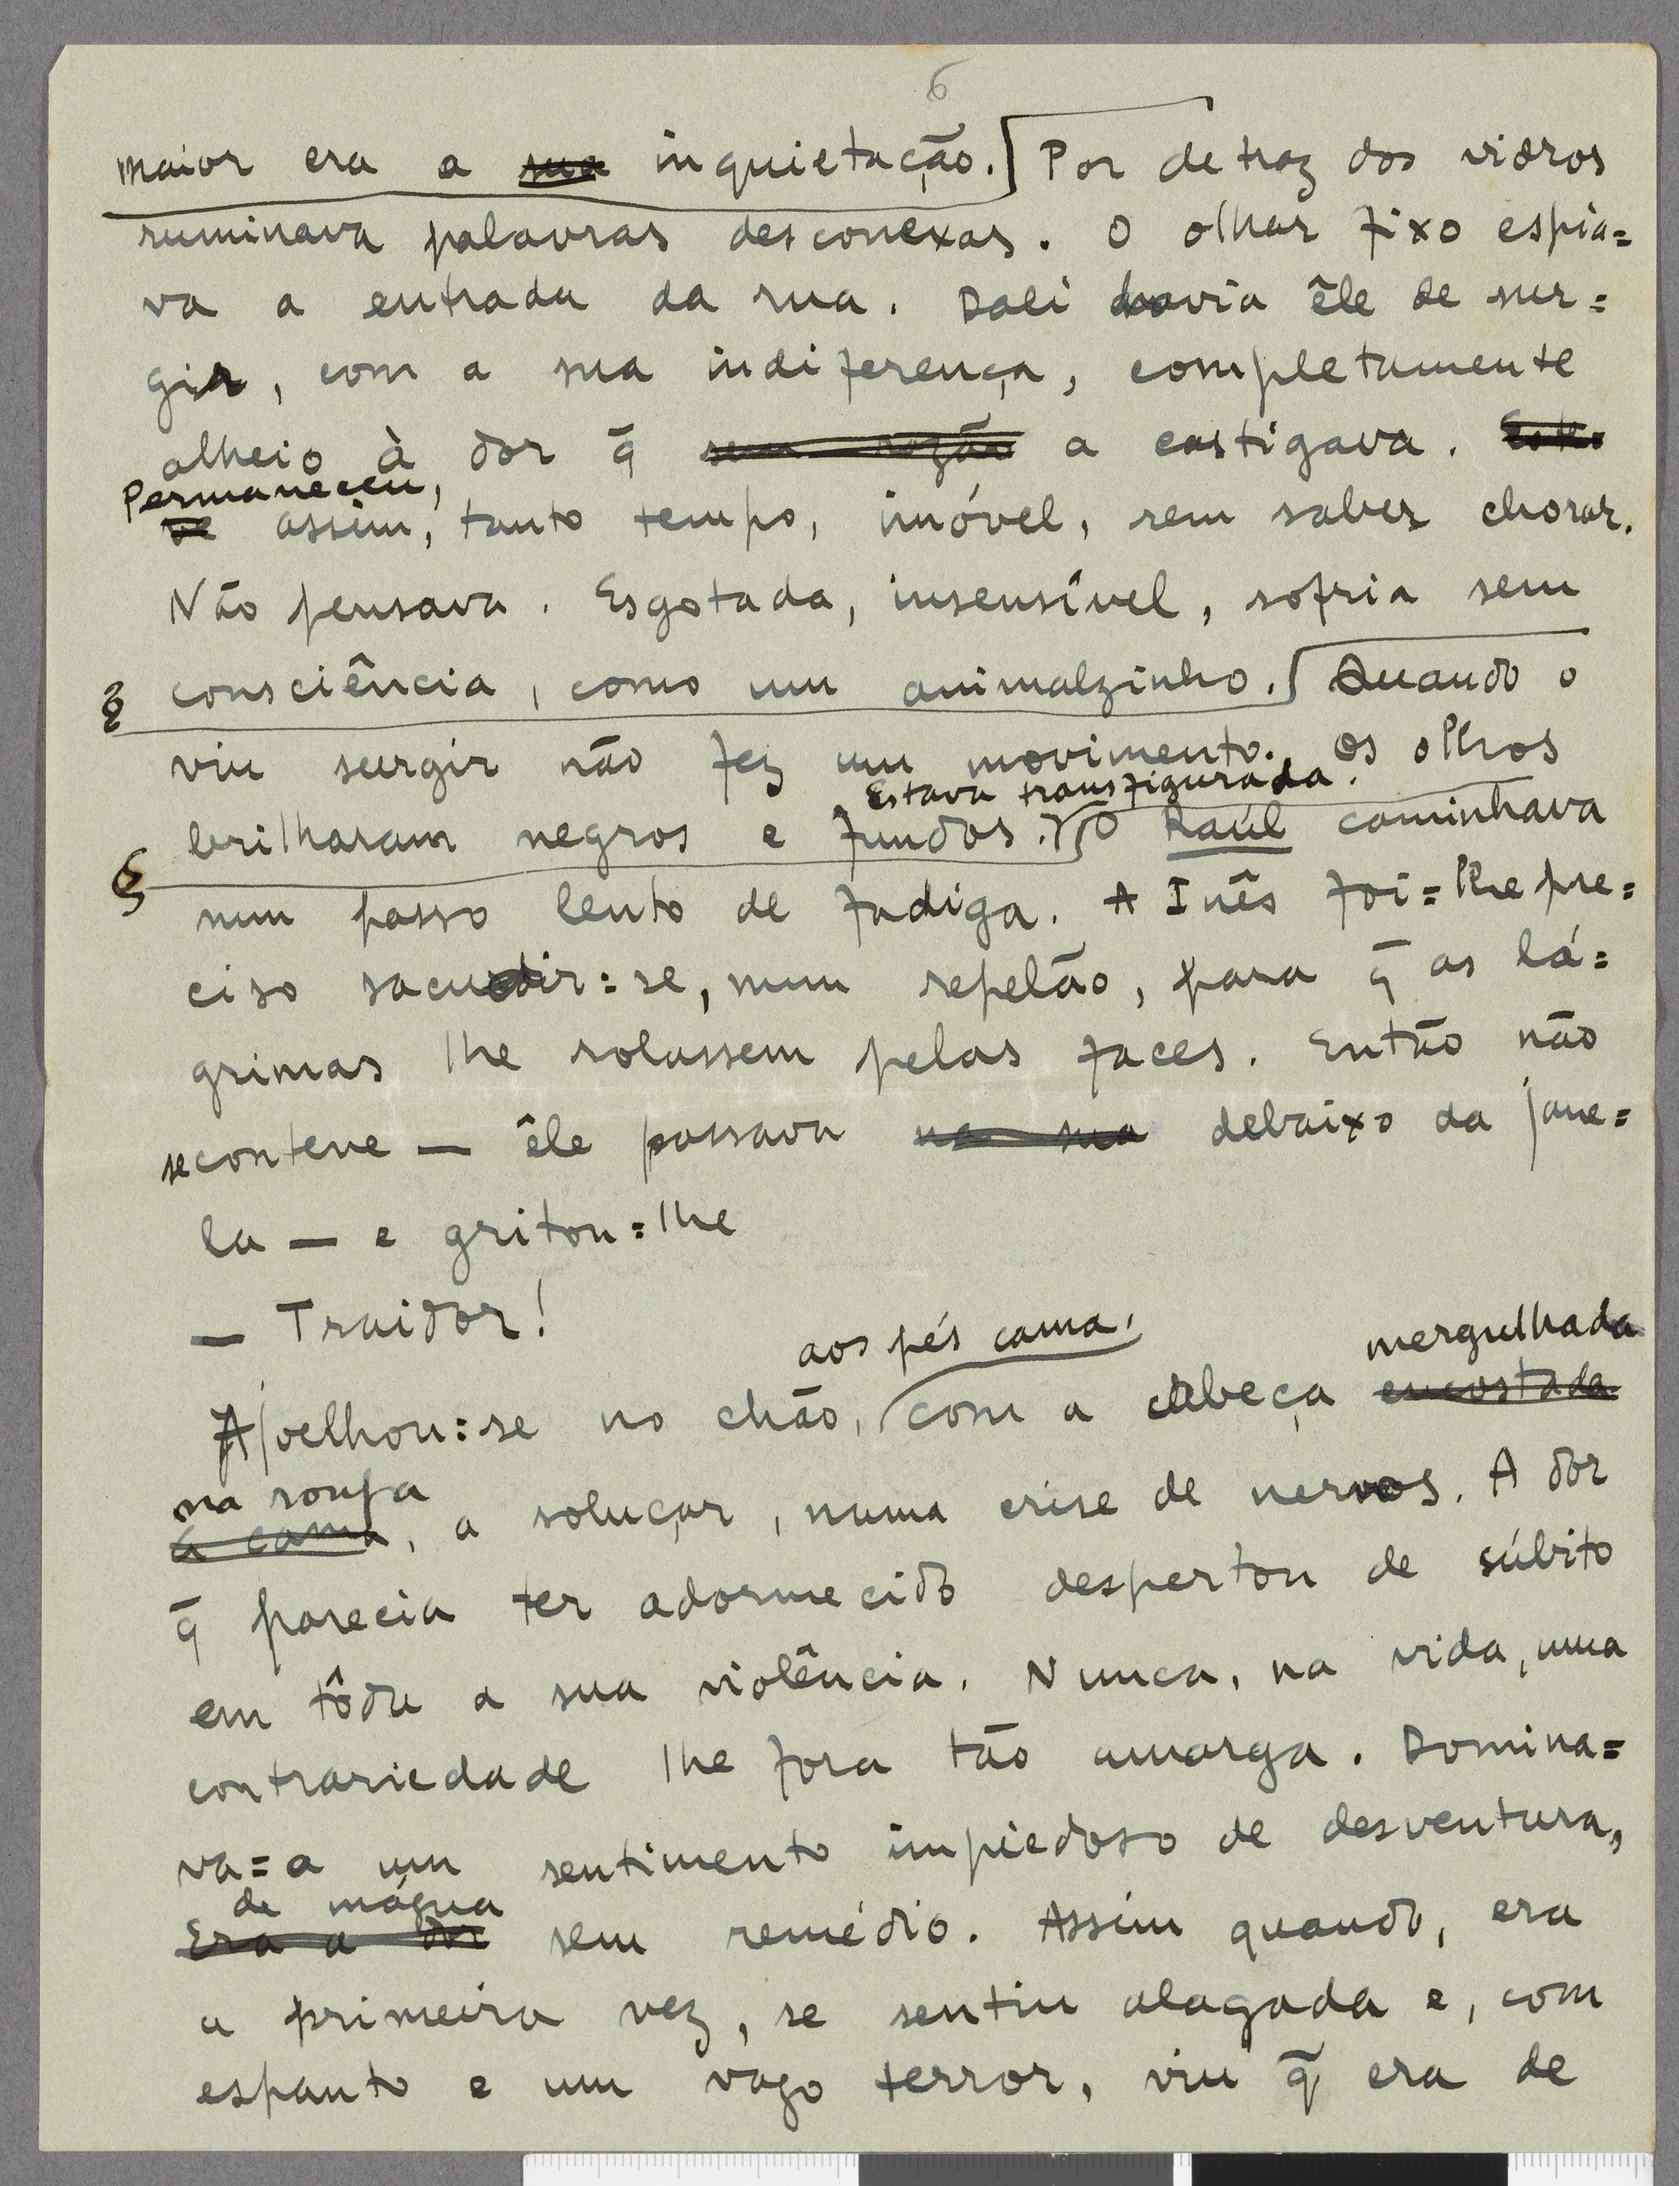 6
maior era a ~~sua~~ inquietação. Por detraz dos vidros
ruminava palavras desconexas. O olhar fixo espia=
va a entrada da rua. Dali havia êle de sur=
gir, com a sua indiferença, completamente
alheio à dor q̄ ~~sem razão~~ a castigava. ~~Este~~
Permaneceu,
~~ve~~ assim, tanto tempo, imóvel, sem saber chorar.
Não pensava. Esgotada, insensível, sofria sem
consciência, como um animalzinho. Quando o
viu surgir não fez um movimento. Os olhos
Estava transfigurada.
brilharam negros e fundos. O Raúl caminhava
num passo lento de fadiga. A Inês foi=lhe pre=
ciso sacudir=se, num repelão, para q̄ as lá=
grimas lhe rolassem pelas faces. Então não
se conteve — êle passava ~~na rua~~ debaixo da jane=
la — e gritou=lhe
— Traidor!
aos pés cama, mergulhada
Ajoelhou=se no chão, com a cabeça ~~encostada~~
na roupa
~~à cama~~, a soluçar, numa crise de nervos. A dor
q̄ parecia ter adormecido despertou de súbito
em tôda a sua violência. Nunca, na vida, uma
contrariedade lhe fora tão amarga. Domina=
va=a um sentimento impiedoso de desventura,
de mágua
~~Era a dor~~ sem remédio. Assim quando, era
a primeira vez, se sentiu alagada e, com
espanto e um vago terror, viu q̄ era de